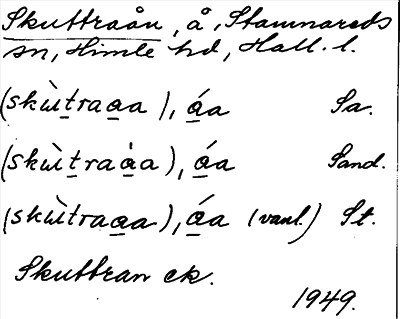 Skuttraån, å, Stamnareds
sn, Himle hd, Hall. l.
(skùt̲traa̲a), á̲a Sa.
(skùt̲traà̲a), á̲a Sand.
(skùttraa̲a), á̲a (vanl.) St.
Skuttran ek.
1949.